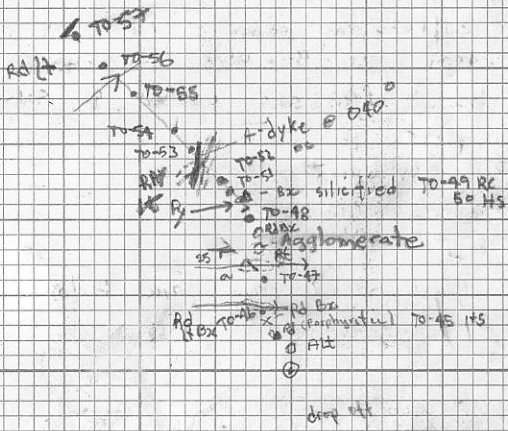 TO-57
TO-56
Rd lt
TO-55
TO-54
A-dyke @ 040
TO-53
TO-52
TO-51
Bx silicified TO-49 RC
50 HS
Py
TO-48
Rd Bx
Agglomerate
25
TO-47
Rd Bx
TO-46
Rd
lt Bx
(porphyritic) TO-45 HS
Alt
drop off